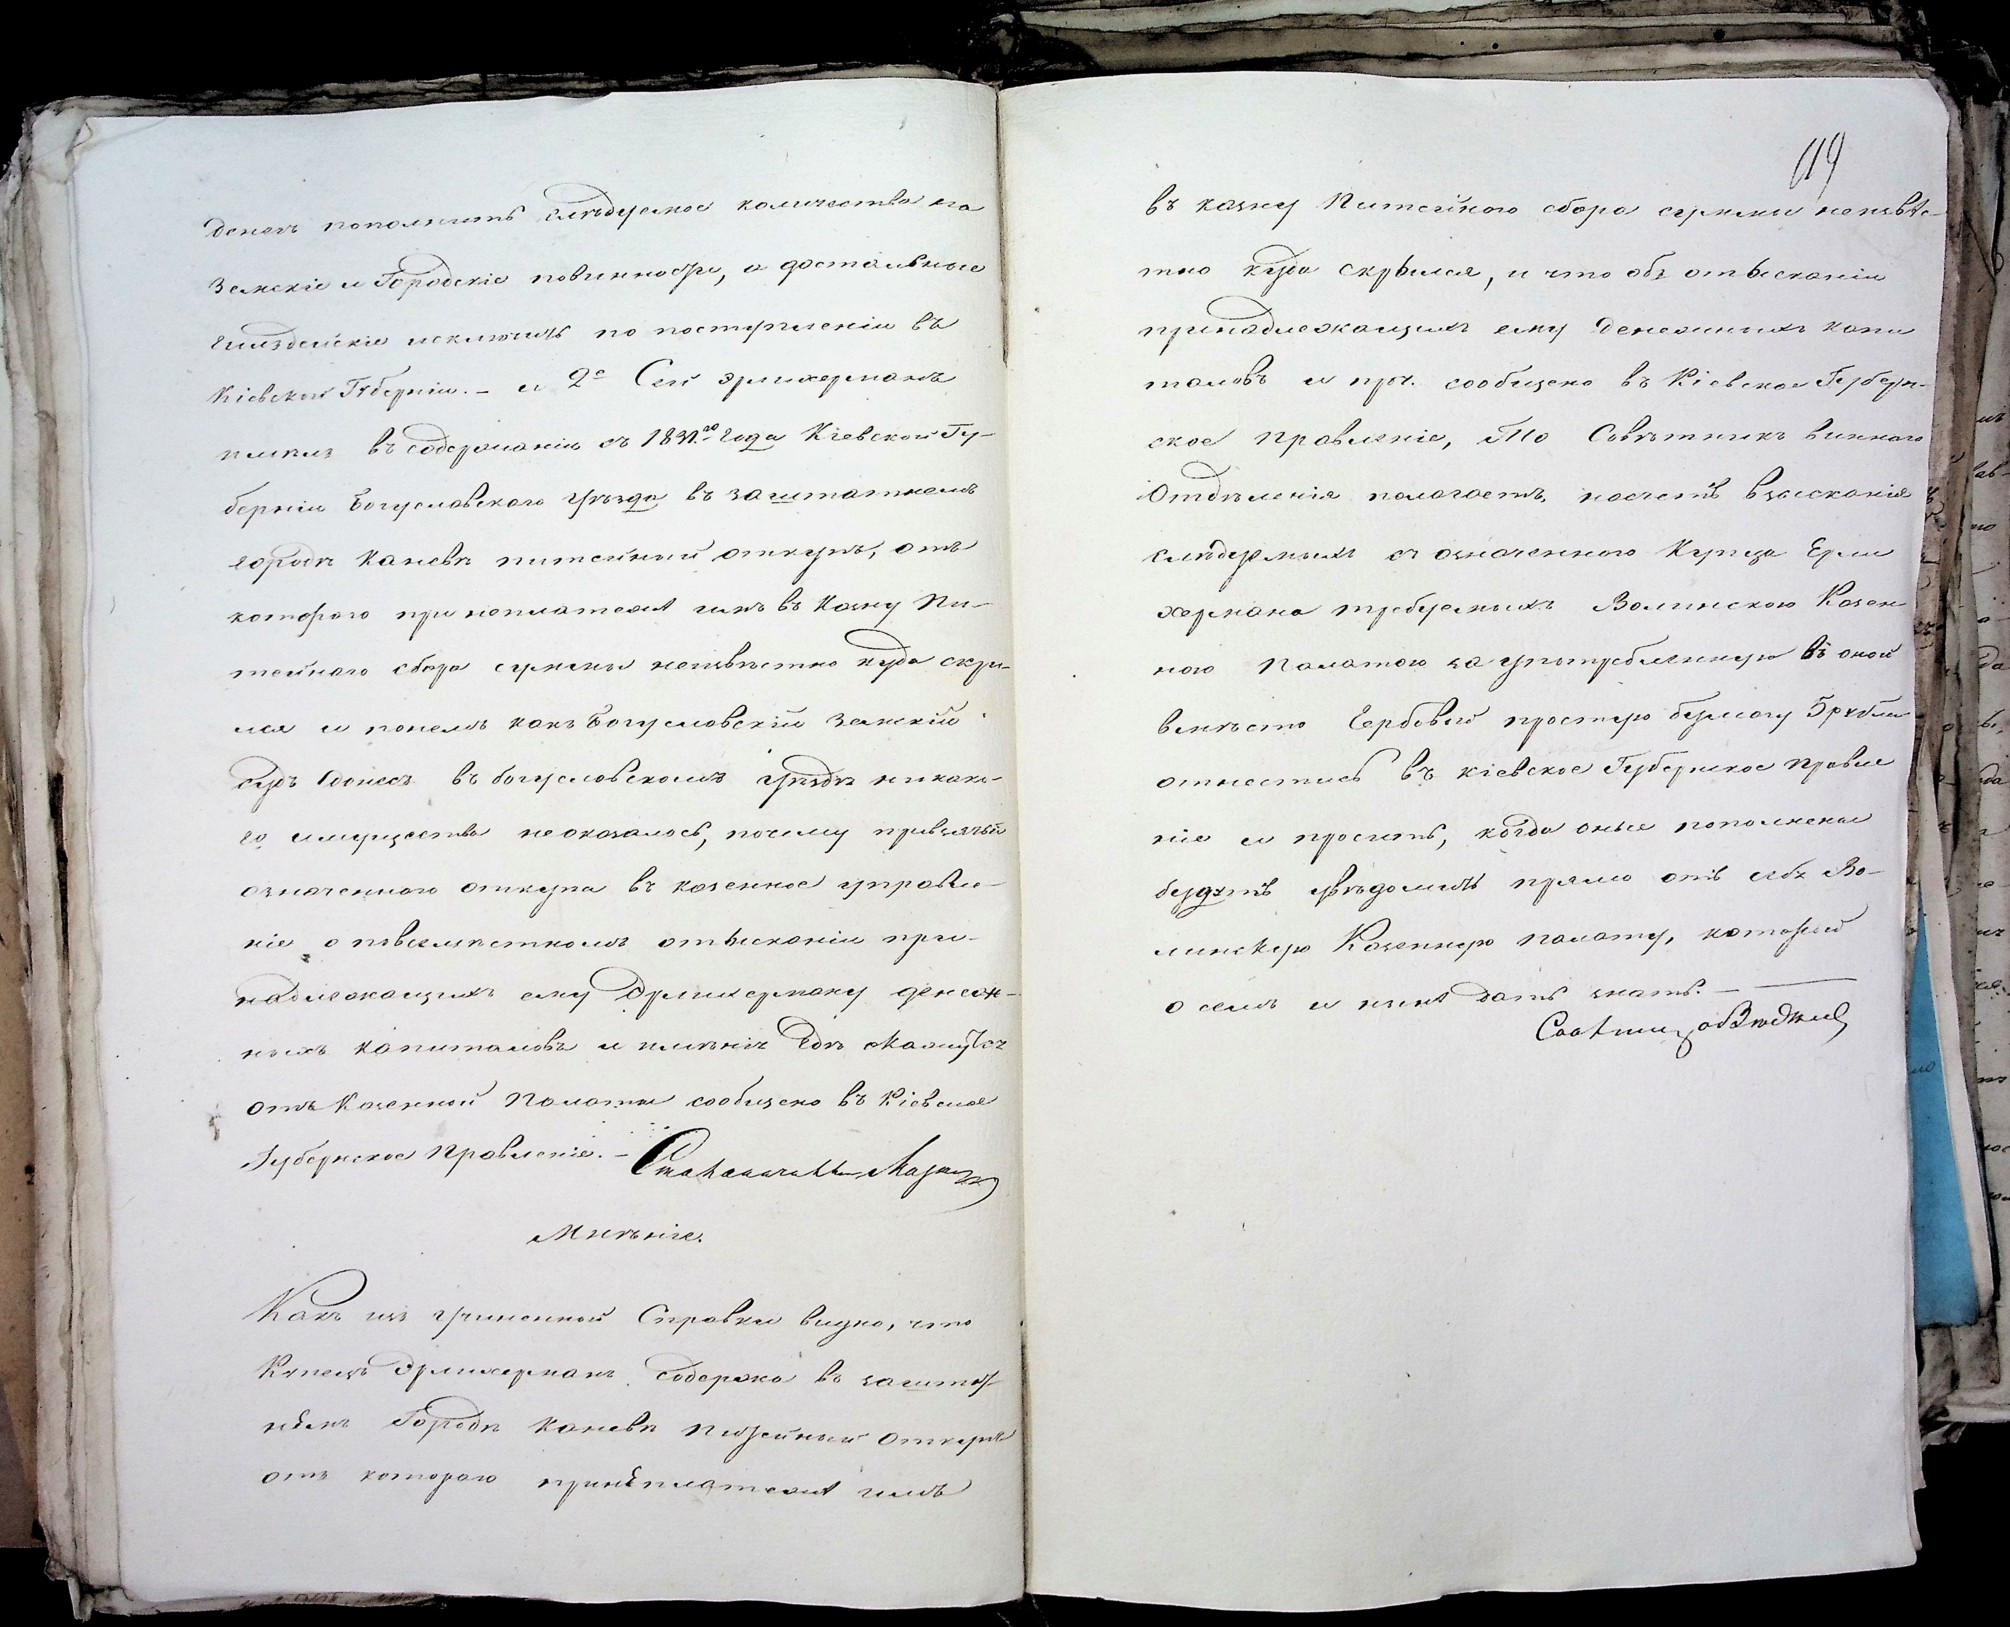 денегъ пополнить слѣдуемое количество на
Земскіе и Городскіе повинности, а достальные
гилдейскіе исключить по поступленіи въ
Кіевской Губерніи. – и 2е Сей Эрлихерманъ
имѣлъ въ содержаніи съ 1831.го года Кіевской Гу-
берніи Богуславскаго уѣзда въ заштатномъ
городѣ Каневѣ питейный откупъ, отъ
котораго при неплатежѣ имъ въ Казну Пи-
тейнаго сбора суммы неизвѣстно куда скры-
лся и понемъ какъ Богуславскій Земскій
судъ донесъ въ богуславскомъ уѣздѣ никако-
го имущества не оказалось, почему привзятьи
означеннаго откупа въ казенное управле-
ніе о повсемѣстномъ отысканіи при-
надлежащихъ ему Эрлихерману денеж-
ныхъ капиталовъ и имѣніе
отъ Казенной Палаты сообщено въ Кіевское
Губернское Правленіе. –
Мнѣніе.
Какъ изъ учиненной Справки видно, что
Купецъ Эрлихерманъ содержа въ заштат-
номъ Городѣ Каневѣ питейный откупъ
отъ котораго принеплатежѣ имъ
119
въ казну Питейнаго сбора суммы неизвѣс-
тно куда скрылся, и что объ отысканіи
принадлежащихъ ему денежныхъ капи
таловъ и проч. сообщено въ Кіевское Губерн-
ское Правленіе, То Совѣтникъ виннаго
Отдѣленія полагаетъ, насчетъ взысканія
слѣдуемыхъ съ означеннаго Купца Ерли
хермана требуемыхъ Волинскою Казен
ною Палатою за употребленную въ оной
вмѣсто Гербовой простую бумагу 5 рубли
отнестись въ Кіевское Губернское Правле
ніе и просить, когда оные пополнены
будутъ увѣдомить прямо отъ себя Во-
линскую Казенную палату, которой
о семъ и нынѣ дать знать. –